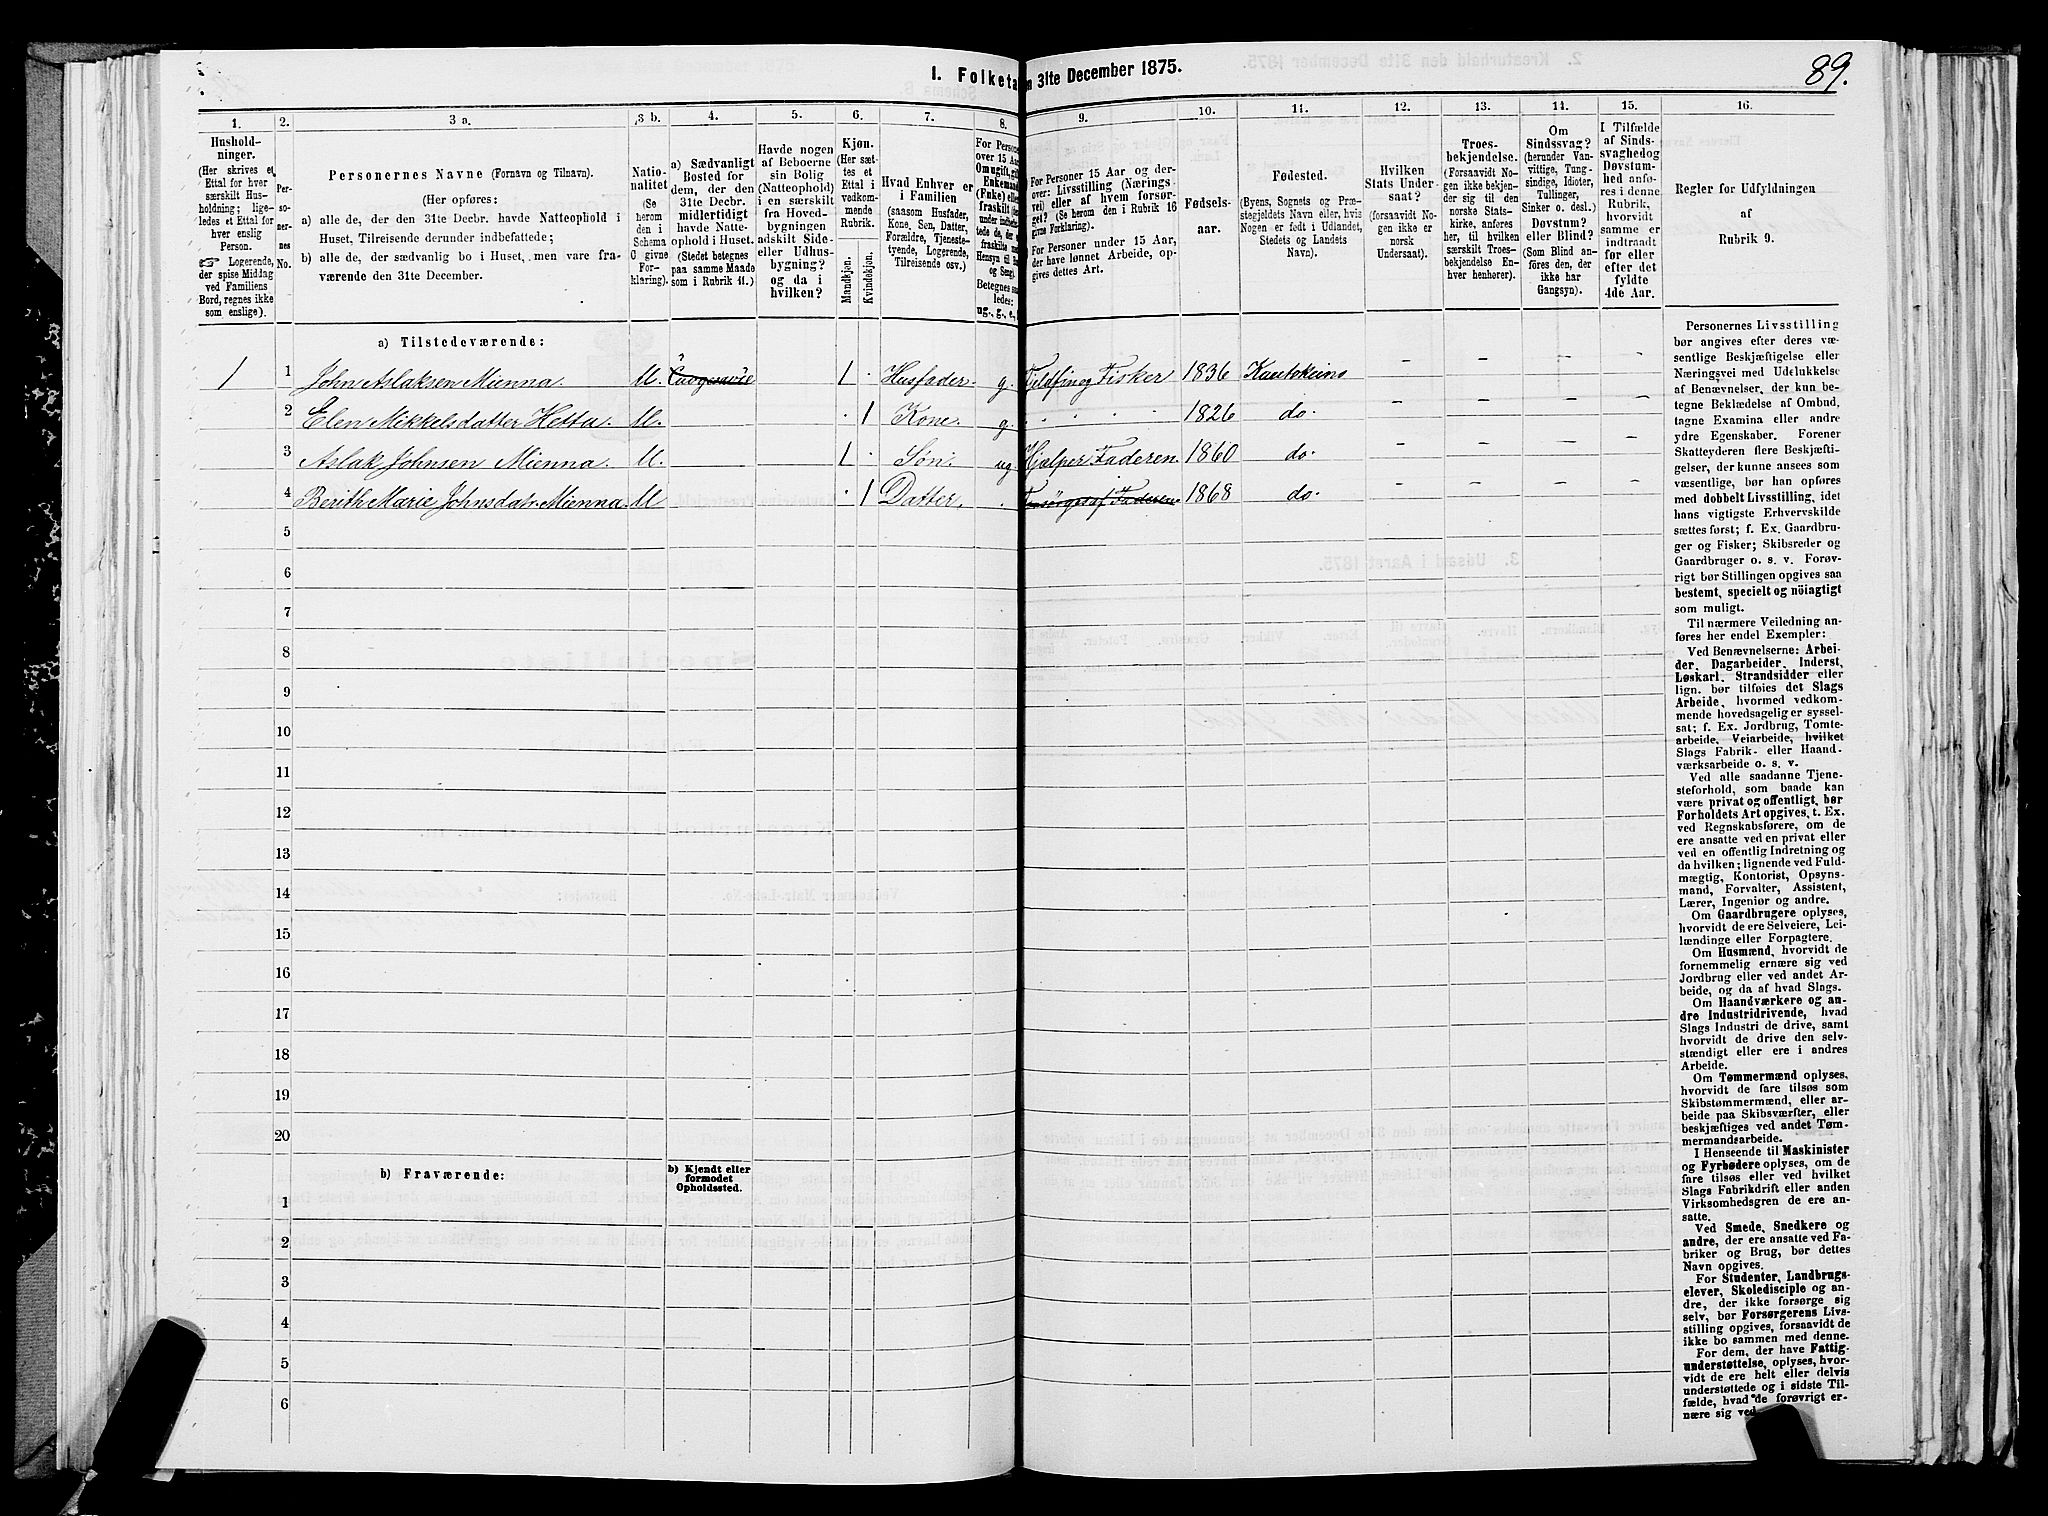 89.
1. Folketa
n 31te December 1875.
1. 2. 3 a. 3 b. 4. 5. 6. 7. 8. 9. 10. 11. 12. 13. 14. 15. 16.
Hushold-
ninger.
(Her skrives et
Ettal for hver
særskilt Hus-
holdning; lige-
ledes et Ettal for
hver enslig
Person.
☞ Logerende,
der spise Middag
ved Familiens
Bord, regnes ikke
som enslige).
Per-
so-
ner-
nes
No.
Personernes Navne (Fornavn og Tilnavn).
(Her opføres:
a) alle de, der den 31te Decbr. havde Natteophold i
Huset, Tilreisende derunder indbefattede;
b) alle de, der sædvanlig bo i Huset, men vare fra-
værende den 31te December.
Natio-
nalitet
(Se
herom
den i
Schema
C givne
For-
klaring).
a) Sædvanligt
Bosted for
dem, der den
31te Decbr.
midlertidigt
havde Natte-
ophold i Huset.
(Stedet betegnes
paa samme Maade
som i Rubrik 11.)
Havde nogen
af Beboerne
sin Bolig
(Natteophold)
i en særskilt
fra Hoved-
bygningen
adskilt Side-
eller Udhus-
bygning?
og da i
hvilken?
Kjøn.
(Her sæt-
tes et
Ettal i
vedkom-
mende
Rubrik.
Mandkjøn.
Kvindekjøn.
Hvad Enhver er
i Familien
(saasom Husfader,
Kone, Søn, Datter,
Forældre, Tjeneste-
tyende, Logerende,
Tilreisende osv.)
For Persone
over 15 Aar
Om ugift, gift
Enkemand
(Enke) eller
fraskilt (her-
under indbefat-
tede de, der ere
fraskilte med
Hensyn til Bord
og Seng).
Betegnes saa-
ledes:
ug., g., e.,
For Personer 15 Aar og der-
over: Livsstilling (Nærings-
vei) eller af hvem forsør-
get? (Se herom den i Rubrik 16
givne Forklaring).
For Personer under 15 Aar,
der have lønnet Arbeide, op-
gives dettes Art.
Fødsels-
aar.
Fødested.
(Byens, Sognets og Præ-
stegjeldets Navn eller, hvis
Nogen er født i Udlandet,
Stedets og Landets
Navn).
Hvilken
Stats Under-
saat?
(forsaavidt No-
gen ikke er
norsk
Undersaat).
Troes-
bekjendelse.
(Forsaavidt No-
gen ikke bekjen-
der sig til den
norske Stats-
kirke, anføres
her, til hvilken
særskilt Troes-
bekjendelse En-
hver henhører).
Om
Sindssvag?
(herunder Van-
vittige, Tung-
sindige, Idioter,
Tullinger,
Sinker o. desl.)
Døvstum?
eller Blind?
(Som Blind an-
føres den, der
ikke har
Gangsyn).
I Tilfælde
af Sinds-
svaghedog
Døvstum-
hed anfø-
res i denne
Rubrik,
hvorvidt
samme er
indtraadt
før eller
efter det
fyldte
4de Aar.
Regler for Udfyldningen
af
Rubrik 9.
a) Tilstedeværende:
1 1 John Aslaksen Mienna. M. 1 . Husfader. g. Fjeldfin og Fisker 1836 Kautokeino - - - -
2 Elen Mikkelsdatter Hetta. M. . 1 Kone. g. 1826 do. - - - -
3 Aslak Johnsen Mienna. M. 1 . Søn. ug. Hjælper Faderen. 1860 do. - - - -
4 Berith Marie Johnsdatr. Mienna. M . 1 Datter. . Forsørges af Faderen 1868 do. - - - -
5
6
7
8
9
10
11
12
13
14
15
16
17
18
19
20
b) Fraværende:
b) Kjendt eller
formodet
Opholdssted.
1
2
3
4
5
6
Personernes Livsstilling
bør angives efter deres væ-
sentlige Beskjæftigelse eller
Næringsvei med Udelukkelse
af Benævnelser, der kun be-
tegne Beklædelse af Ombud,
tagne Examina eller andre
ydre Egenskaber. Forener
Skatteyderen flere Beskjæfti-
gelser, der kunne ansees som
væsentlige, bør han opføres
med dobbelt Livsstilling, idet
hans vigtigste Erhvervskilde
sættes først; f. Ex. Gaardbru-
ger og Fisker; Skibsreder og
Gaardbruger o. s. v. Forøv-
rigt bør Stillingen opgives saa
bestemt, specielt og nöiagtigt
som muligt.
Til nærmere Veiledning an-
føres her endel Exempler:
Ved Benævnelserne: Arbei-
der, Dagarbeider, Inderst,
Løskarl, Strandsidder eller
lign. bør tilføies det Slags
Arbeide, hvormed vedkom-
mende hovedsagelig er syssel-
sat; f. Ex. Jordbrug, Tomte-
arbeide, Veiarbeide, hvilket
Slags Fabrik- eller Haand-
værksarbeide o. s. v.
Ved alle saadanne Tjene-
steforhold, som baade kan
være privat og offentligt, bør
Forholdets Art opgives, t. Ex.
ved Regnskabsførere, om de
ere ansatte ved en privat eller
ved en offentlig Indretning og
da hvilken; lignende ved Fuld-
mægtig, Kontorist, Opsyns-
mand, Forvalter, Assistent,
Lærer, Ingeniør og andre.
Om Gaardbrugere oplyses,
hvorvidt de ere Selveiere, Lei-
lændinge eller Forpagtere.
Om Husmænd, hvorvidt de
fornemmelig ernære sig ved
Jordbrug eller ved andet Ar-
beide, og da af hvad Slags.
Om Haandværkere og an-
dre Industridrivende, hvad
Slags Industri de drive, samt
hvorvidt de drive den selv-
stændigt eller ere i andres
Arbeide.
Om Tømmermænd oplyses,
hvorvidt de fare tilsøs som
Skibstømmermænd, eller ar-
beide paa Skibsværfter, eller
beskjæftiges ved andet Tøm-
mermandsarbeide.
I Henseende til Maskinister
og Fyrbødere oplyses, om de
fare tilsøs eller ved hvilket
Slags Fabrikdrift eller anden
Virksomhedsgren de ere an-
satte.
Ved Smede, Snedkere og
andre, der ere ansatte ved Fa-
briker og Brug, bør dettes
Navn opgives.
For Studenter, Landbrugs-
elever, Skoledisciple og an-
dre, der ikke forsørge sig
selv, bør Forsørgerens Livs-
stilling opgives, forsaavidt de
ikke bo sammen med denne.
For dem, der have Fattig-
understøttelse, oplyses, hvor-
vidt de ere helt eller delvis
understøttede og i sidste Til-
fælde, hvad de forøvrigt er-
nære sig ved.